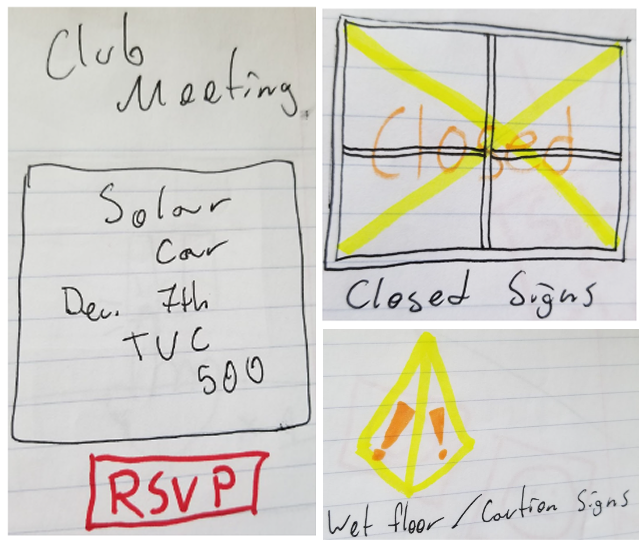 Club
Meeting
Solar
Car
Dec. 7th
TUC
500
RSVP
Closed
Closed Signs
! !
Wet floor / Caution Signs